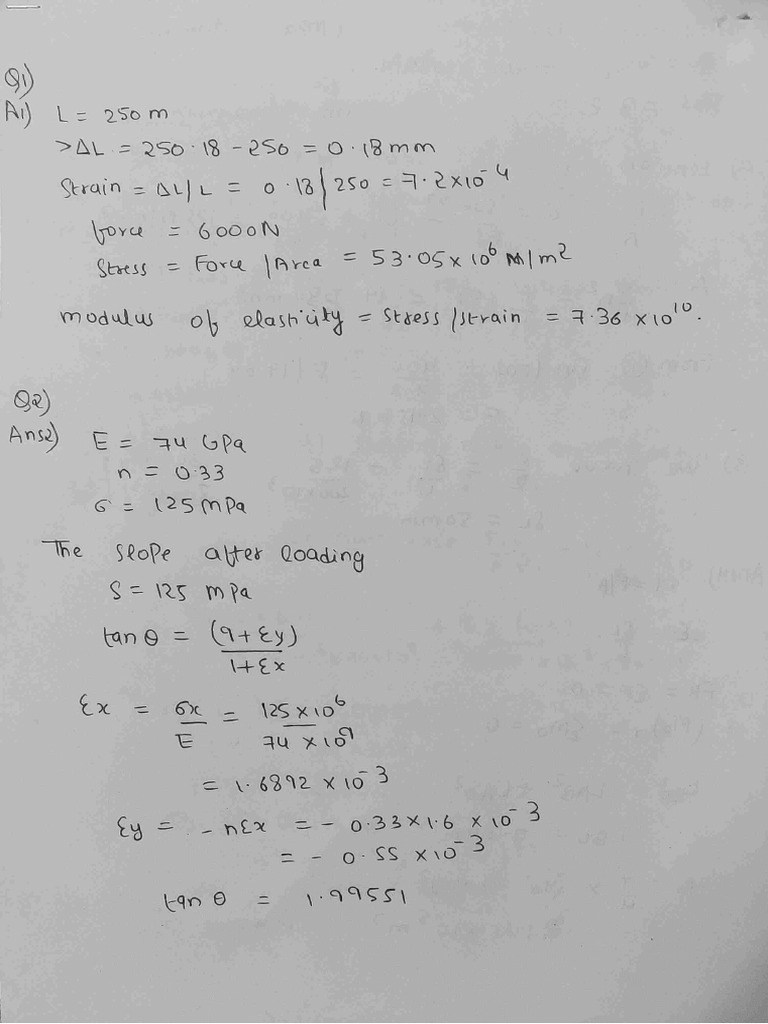 Q1)
A1) L = 250 m
>ΔL = 250.18 - 250 = 0.18 mm
Strain = ΔL/L = 0.18/250 = 7.2×10⁻⁴
force = 6000N
Stress = Force /Area = 53.05 × 10⁶ N/m²
modulus of elasticity = Stress /strain = 7.36 × 10¹⁰.
Q2)
Ans2) E = 74 GPa
n = 0.33
σ = 125 mPa
The slope after loading
S = 125 mpa
tan θ = (9+εy)/1+εx
εx = σx/E = 125×10⁶/74×10⁹
= 1.6892 × 10⁻³
εy = -nεx = - 0.33×1.6 × 10⁻³
= - 0.55 ×10⁻³
tan θ = 1.99551